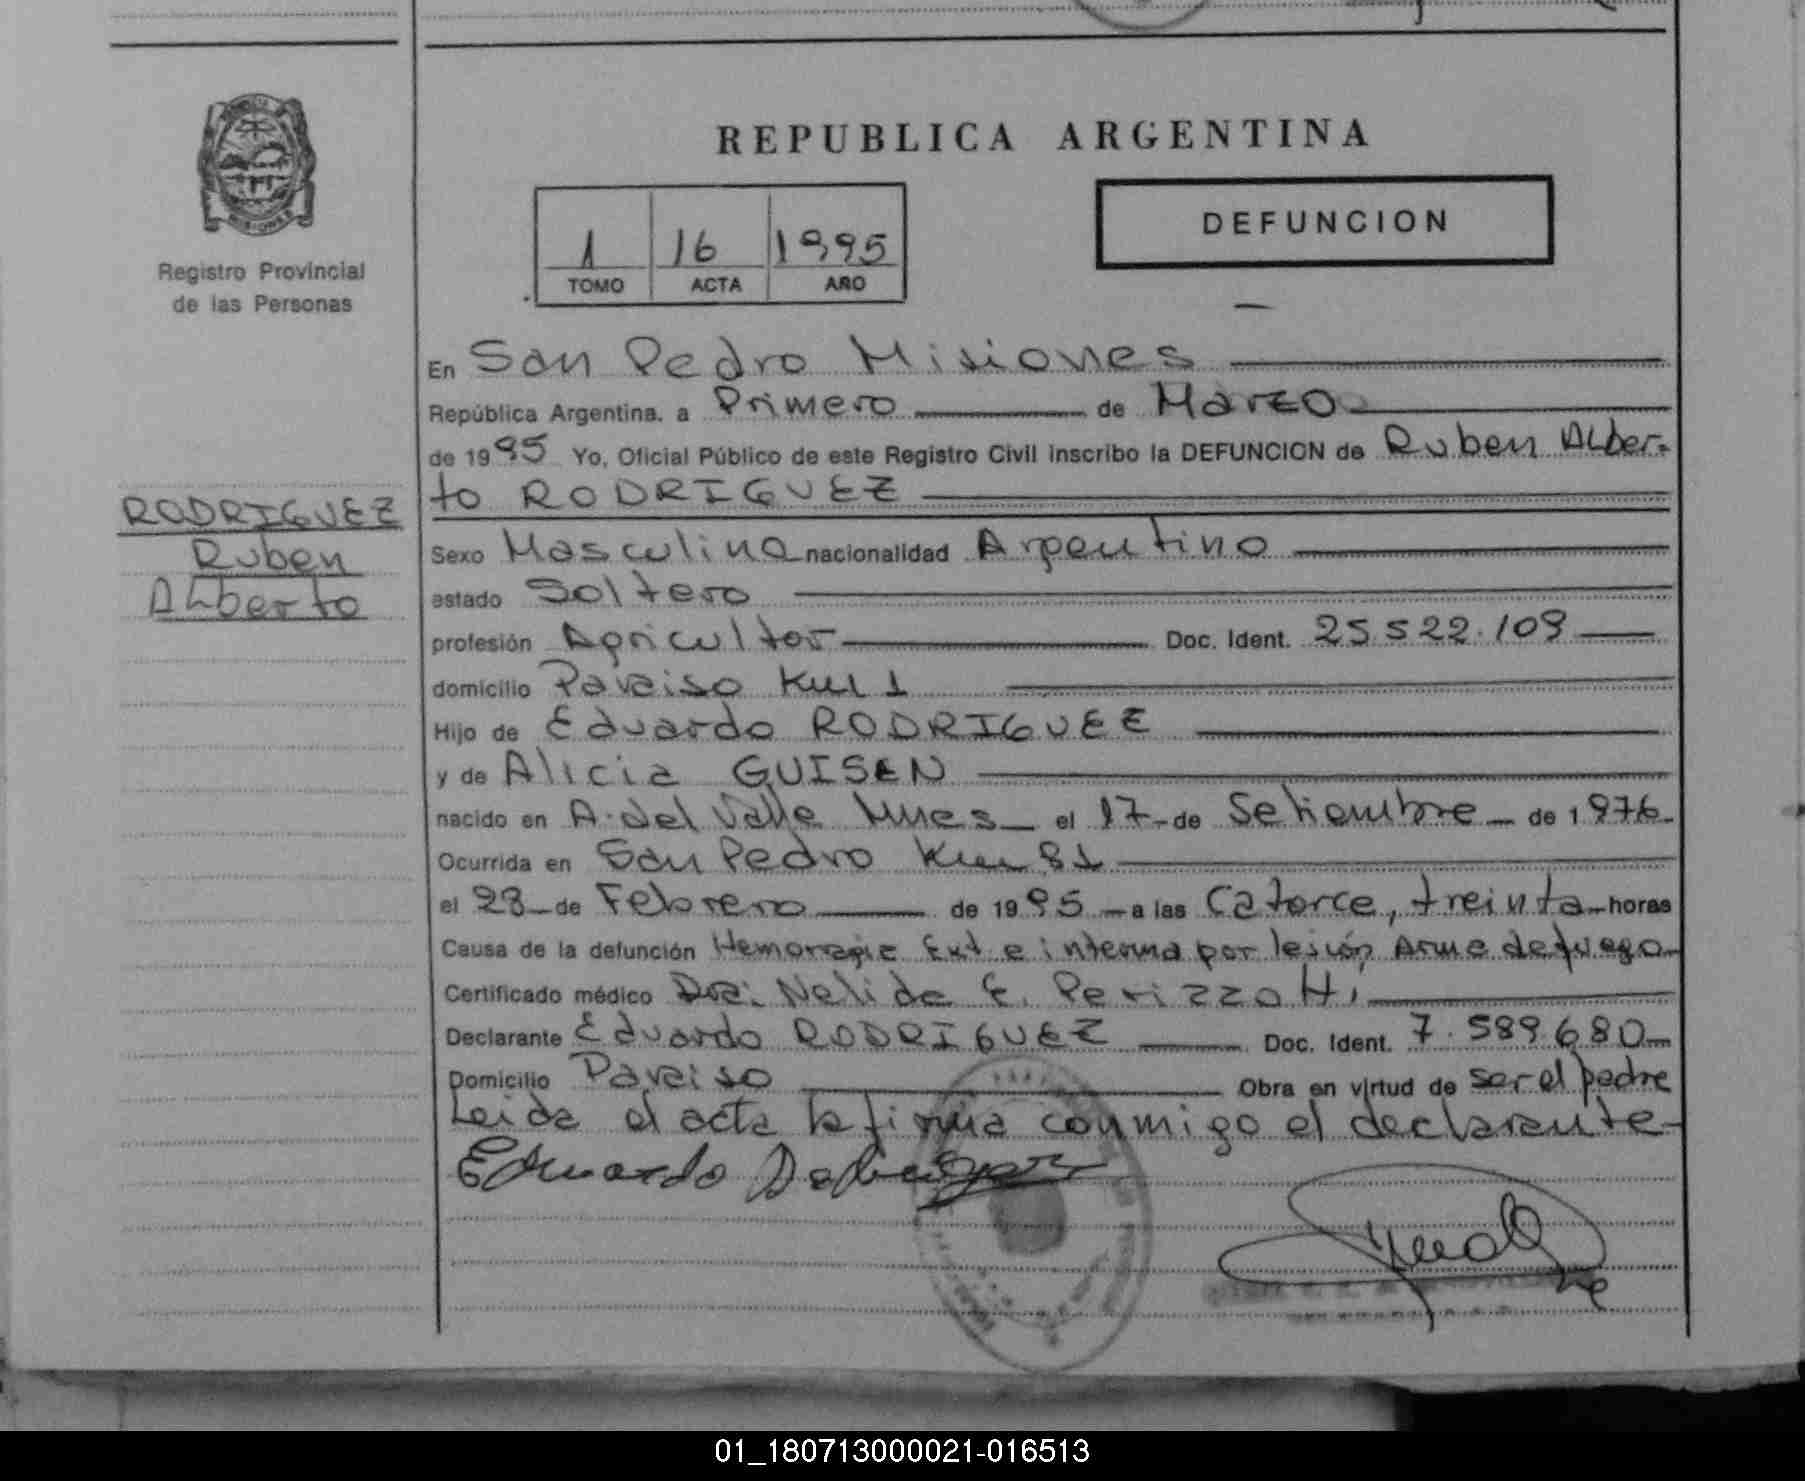 REPUBLICA ARGENTINA
1 16 1995
TOMO ACTA AÑO
DEFUNCION
Registro Provincial
de las Personas
RODRIGUEZ
Ruben
Alberto
En San Pedro Misiones
República Argentina. a Primero de Marzo
de 1995 Yo, Oficial Público de este Registro Civil inscribo la DEFUNCION de Ruben Alber-
to RODRIGUEZ
Sexo Masculino nacionalidad Argentino
estado Soltero
profesión Agricultor Doc. Ident. 25.522.109
domicilio Paraiso Km 1
Hijo de Eduardo RODRIGUEZ
y de Alicia GUISEN
nacido en A. del Valle Mnes el 17 de Setiembre de 1976
Ocurrida en San Pedro Km 81
el 28 de Febrero de 1995 a las Catorce, treinta horas
Causa de la defunción Hemorragie Ext e interna por lesión Arma de fuego
Certificado médico Dra: Nelida E. Perizzo H,
Declarante Eduardo RODRIGUEZ Doc. Ident. 7.589.680
Domicilio Paraiso Obra en virtud de ser el padre
Leida el acta la firma conmigo el declarante
Eduardo
01_180713000021-016513